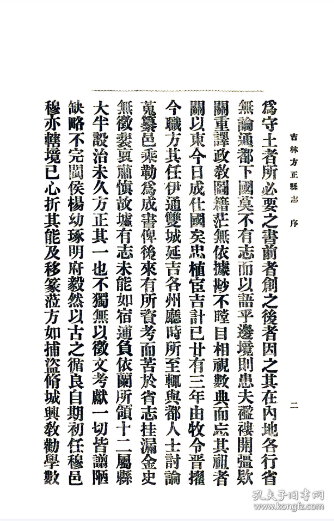 吉林方正縣志 序 二
爲守土者所必要之書前者創之後者因之其在內地各行省
無論通都下國莫不有志而以語乎邊境則患夫襤褸開疆歟
關重譯政敎闕籍茫無依據眇不瞠目相視數典而忘其祖者
關以東今日成仕國矣忠植宦吉計已廿有三年由牧令晉擢
今職方其任伊通雙城延吉各州廳時所至輒與都人士討論
蒐纂邑乘勒爲成書俾後來有所資考而苦於省志挂漏金史
無徵裒肅愼故墟有志未能如宿逋負依蘭所領十二屬縣
大半設治未久方正其一也不獨無以徵文考獻一切皆譾陋
缺略不完閩侯楊幼琢明府毅然以古之循良自期初任穆邑
穆亦轄境已心折其能及移篆蒞方如捕盜脩城興敎勸學數